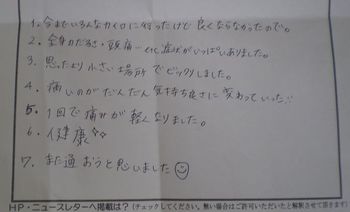 1. 今までいろんなカイロに行ったけど良くならなかったので。
2. 全身のだるさ・頭痛…他症状がいっぱいありました。
3. 思ったより小さい場所でビックリしました。
4. 痛いのがだんだん気持ち良さに変わっていった!!
5. 1回で痛みが軽くなりました。
6. 健康
7. また通おうと思いました
HP・ニュースレターへ掲載は?(チェックしてください。無い場合はご許可いただいたと解釈させて頂きます)